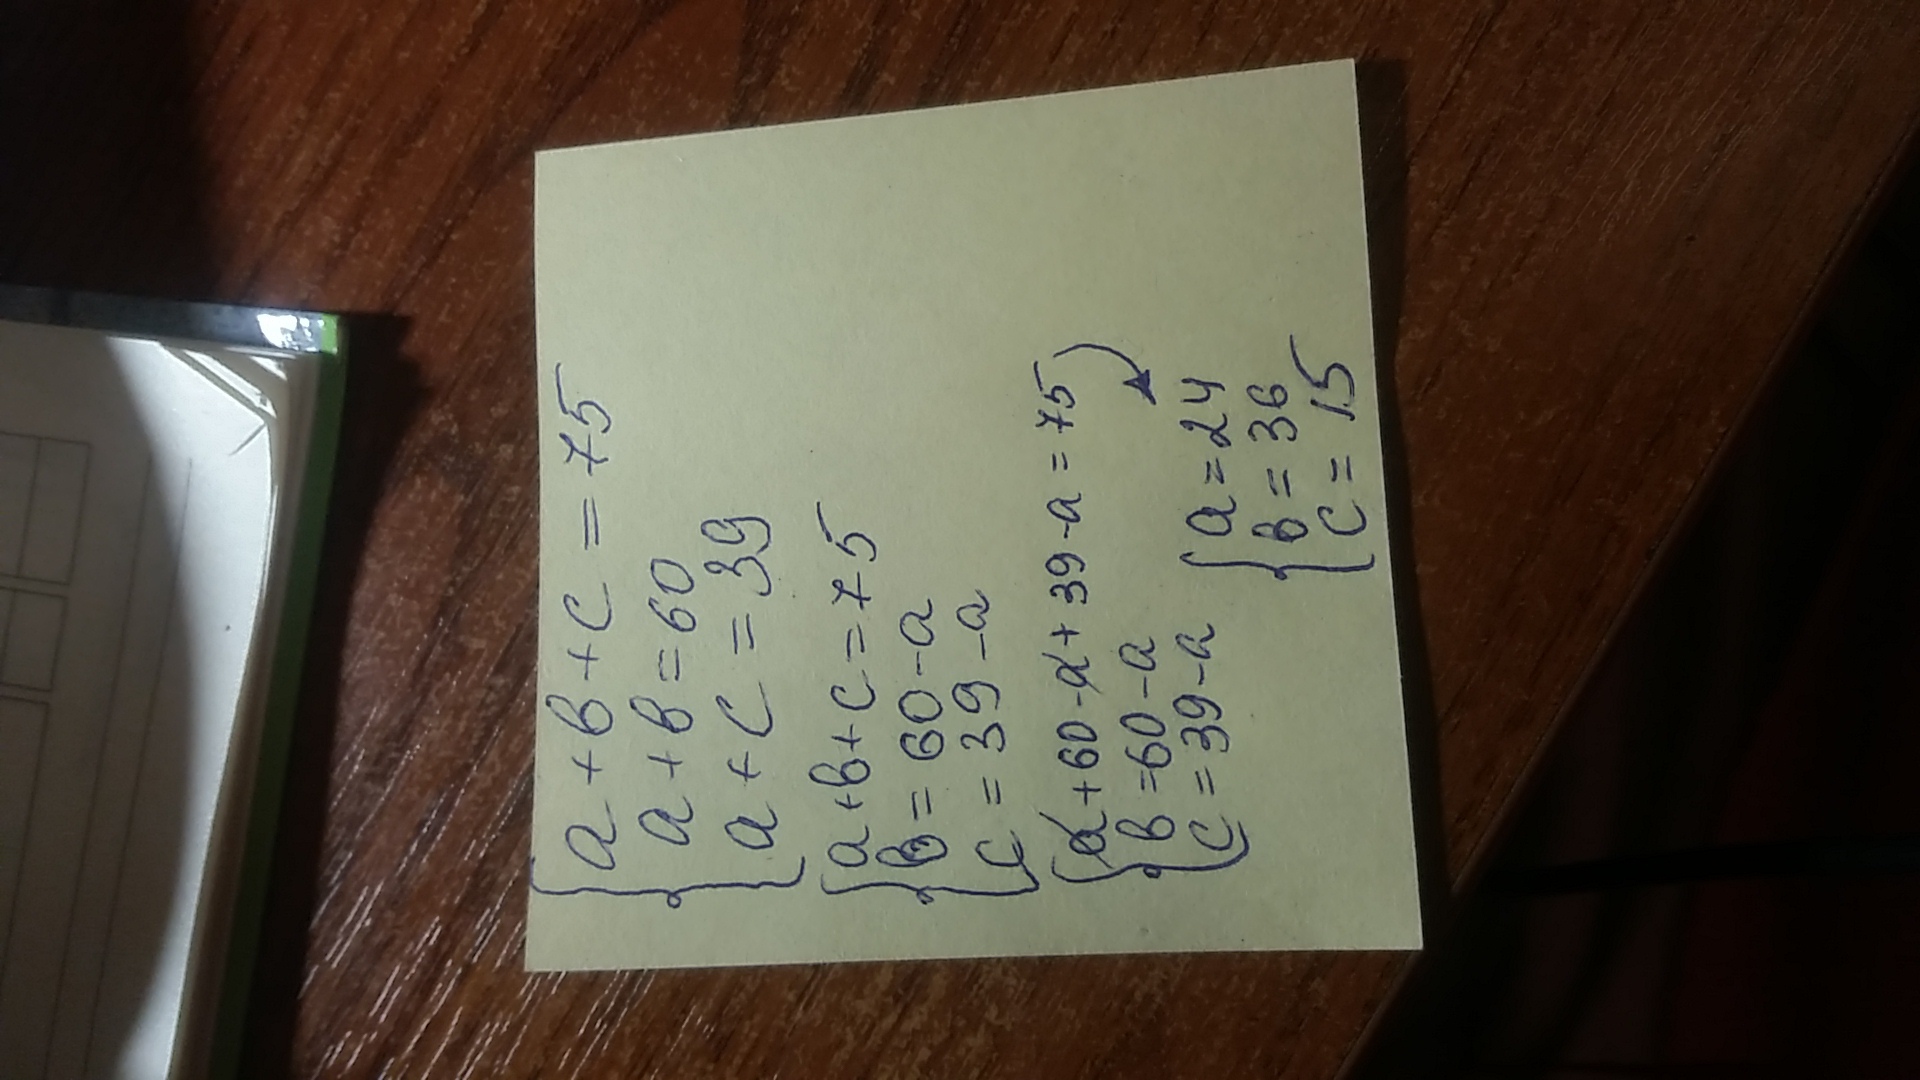 a + b + c = 75
a + b = 60
a + c = 39
a + b + c = 75
b = 60 - a
c = 39 - a
a + 60 - a + 39 - a = 75
b = 60 - a
c = 39 - a
a = 24
b = 36
c = 15